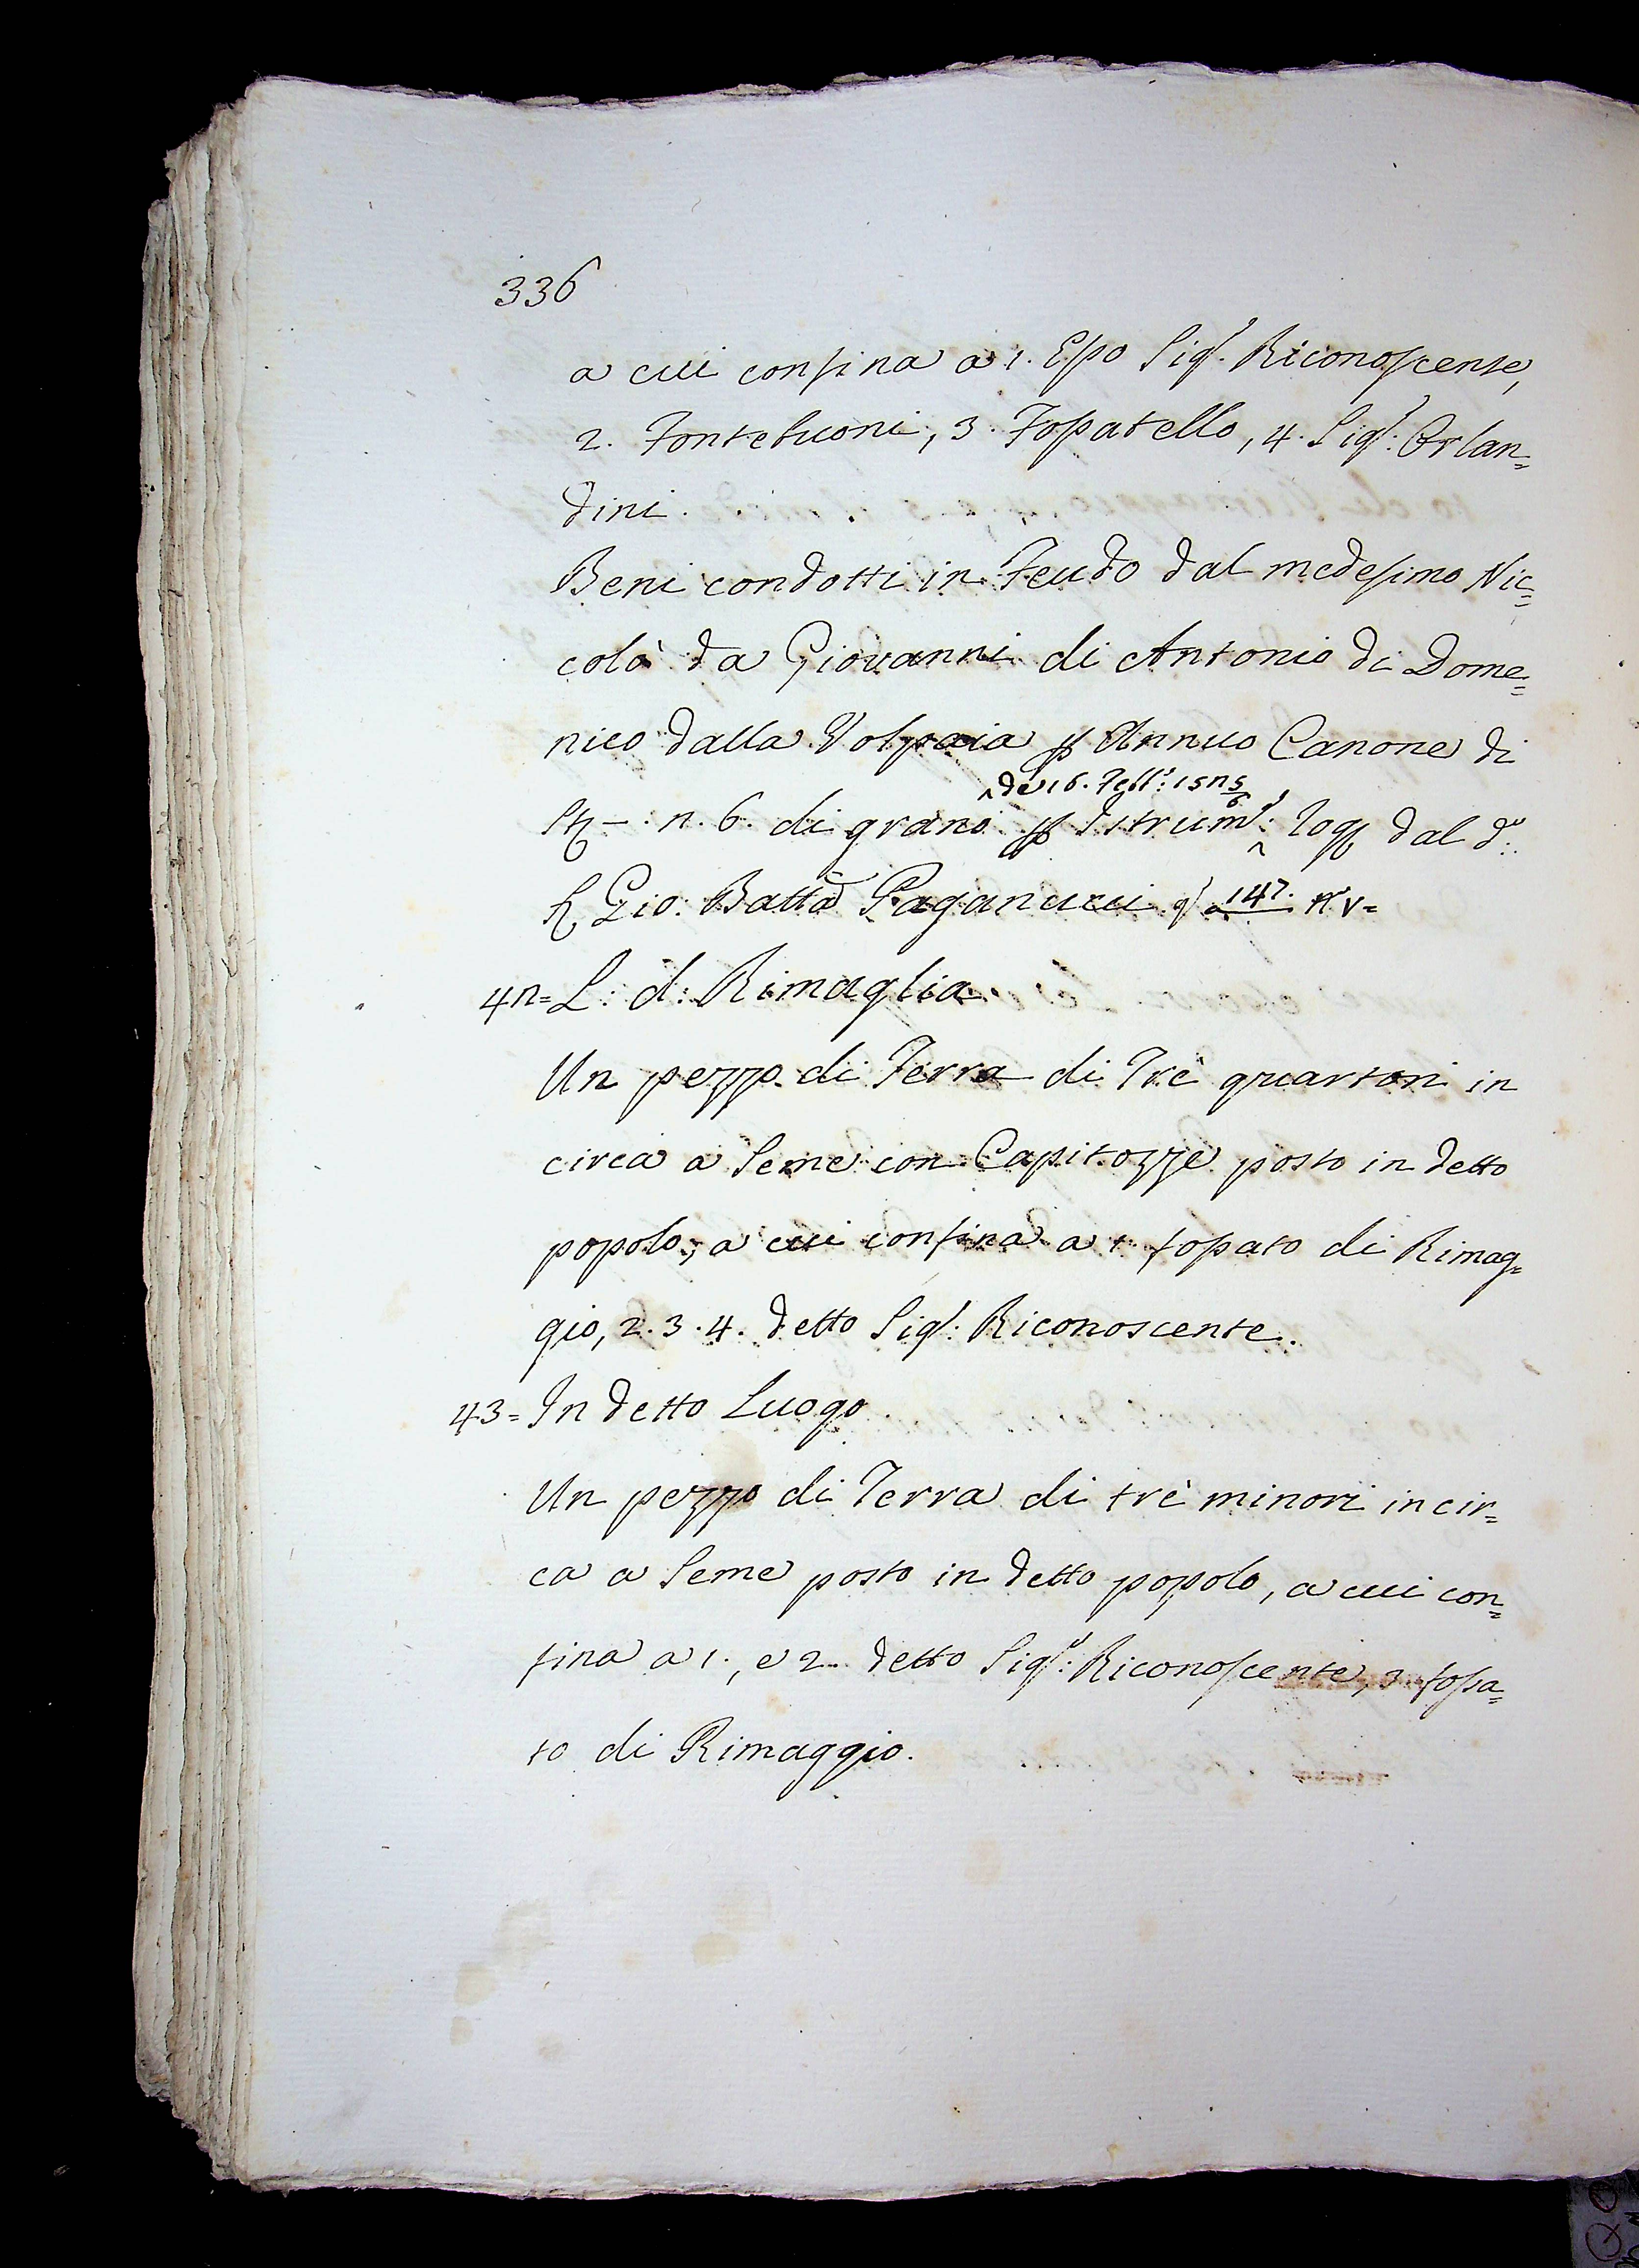 336
a cui confina a 1. Esso Sigr. Riconoscente,
2. Fontebuoni, 3. Fossatello, 4. Sigr. Orlan=
dini.
Beni condotti in Feudo dal medesimo Nic=
colò da Giovanni di Antonio di Dome=
nico dalla Volpaia p Annuo Canone di
de' 16. Febb: 1525/6
n. 6. di grano p Istrum: rog dal d:
Gio: Batta Paganucci a 147.
42= L: d: Rimaglia
Un pezzo di Terra di Trè quartori in
circa a Seme con Capitozze posto in detto
popolo, a cui confina a 1. fossato di Rimag=
gio, 2. 3. 4. detto Sigr: Riconoscente.
43= In detto Luogo
Un pezzo di Terra di trè minori in cir=
ca a Seme posto in detto popolo, a cui con=
fina a 1., e 2. detto Sigr: Riconoscente, 3. fossa=
to di Rimaggio.